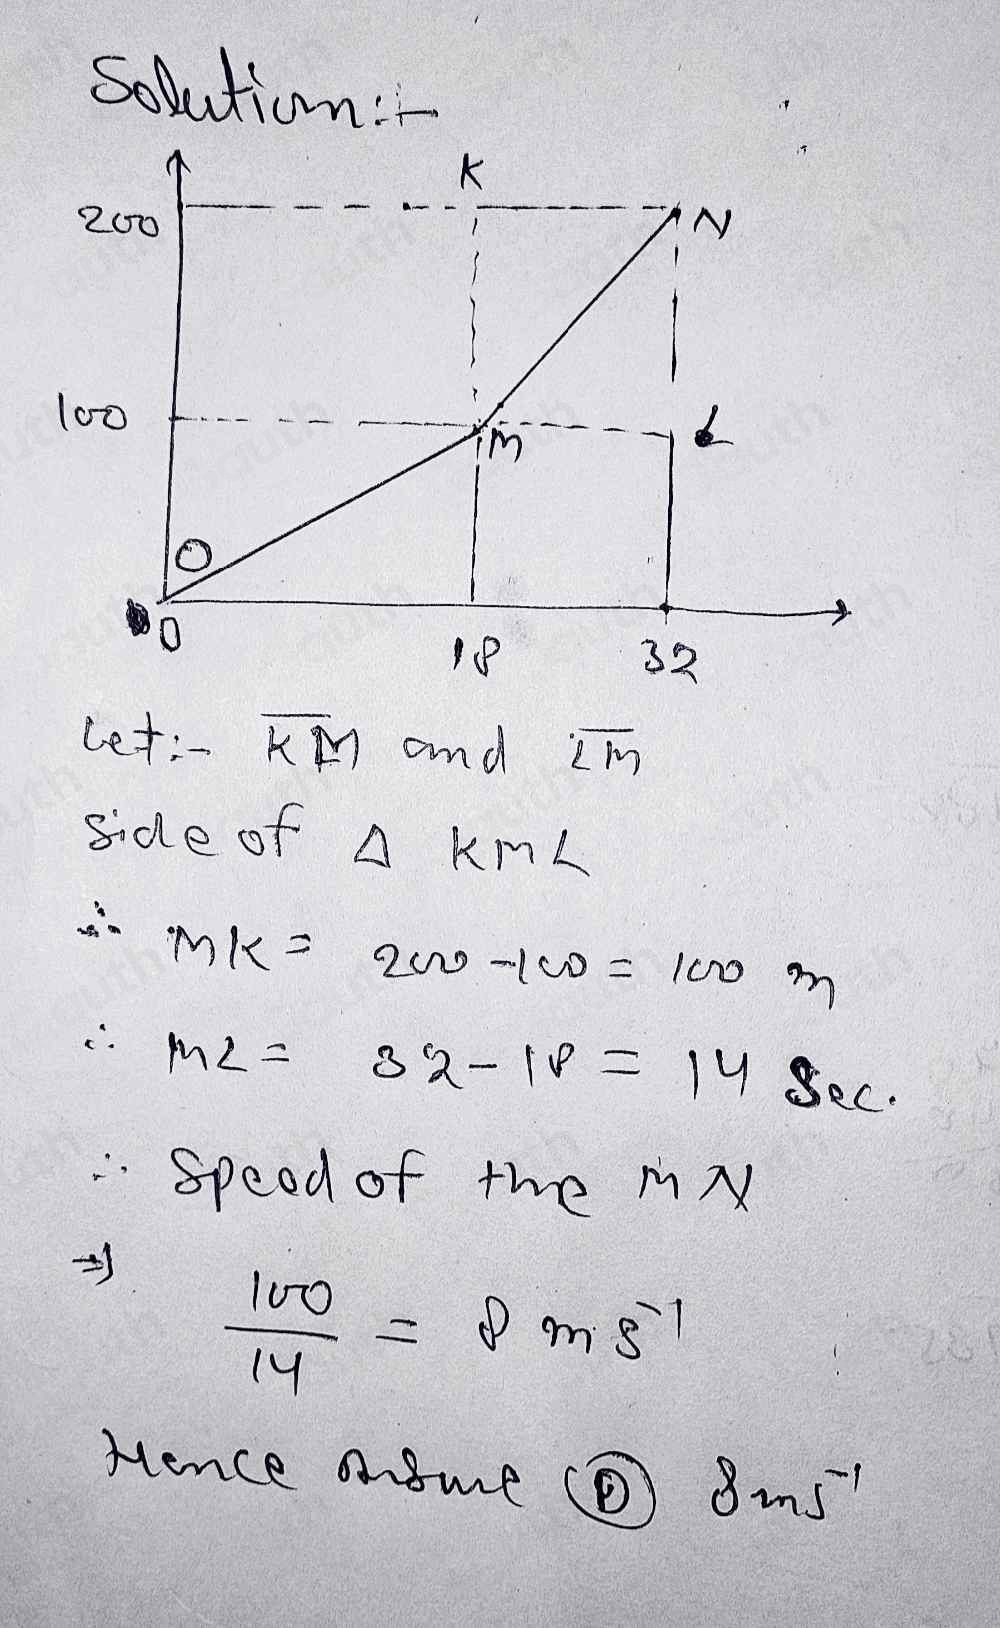 Solution:-
K
200
N
100
M
L
O
0
18
32
Let:- KM and LM
side of Δ KML
∴ MK = 200-100 = 100 m
∴ ML = 32-18 = 14 Sec.
∴ Speed of the MN
⇒ 100/14 = 8 m.s⁻¹
Hence (D) 8ms⁻¹